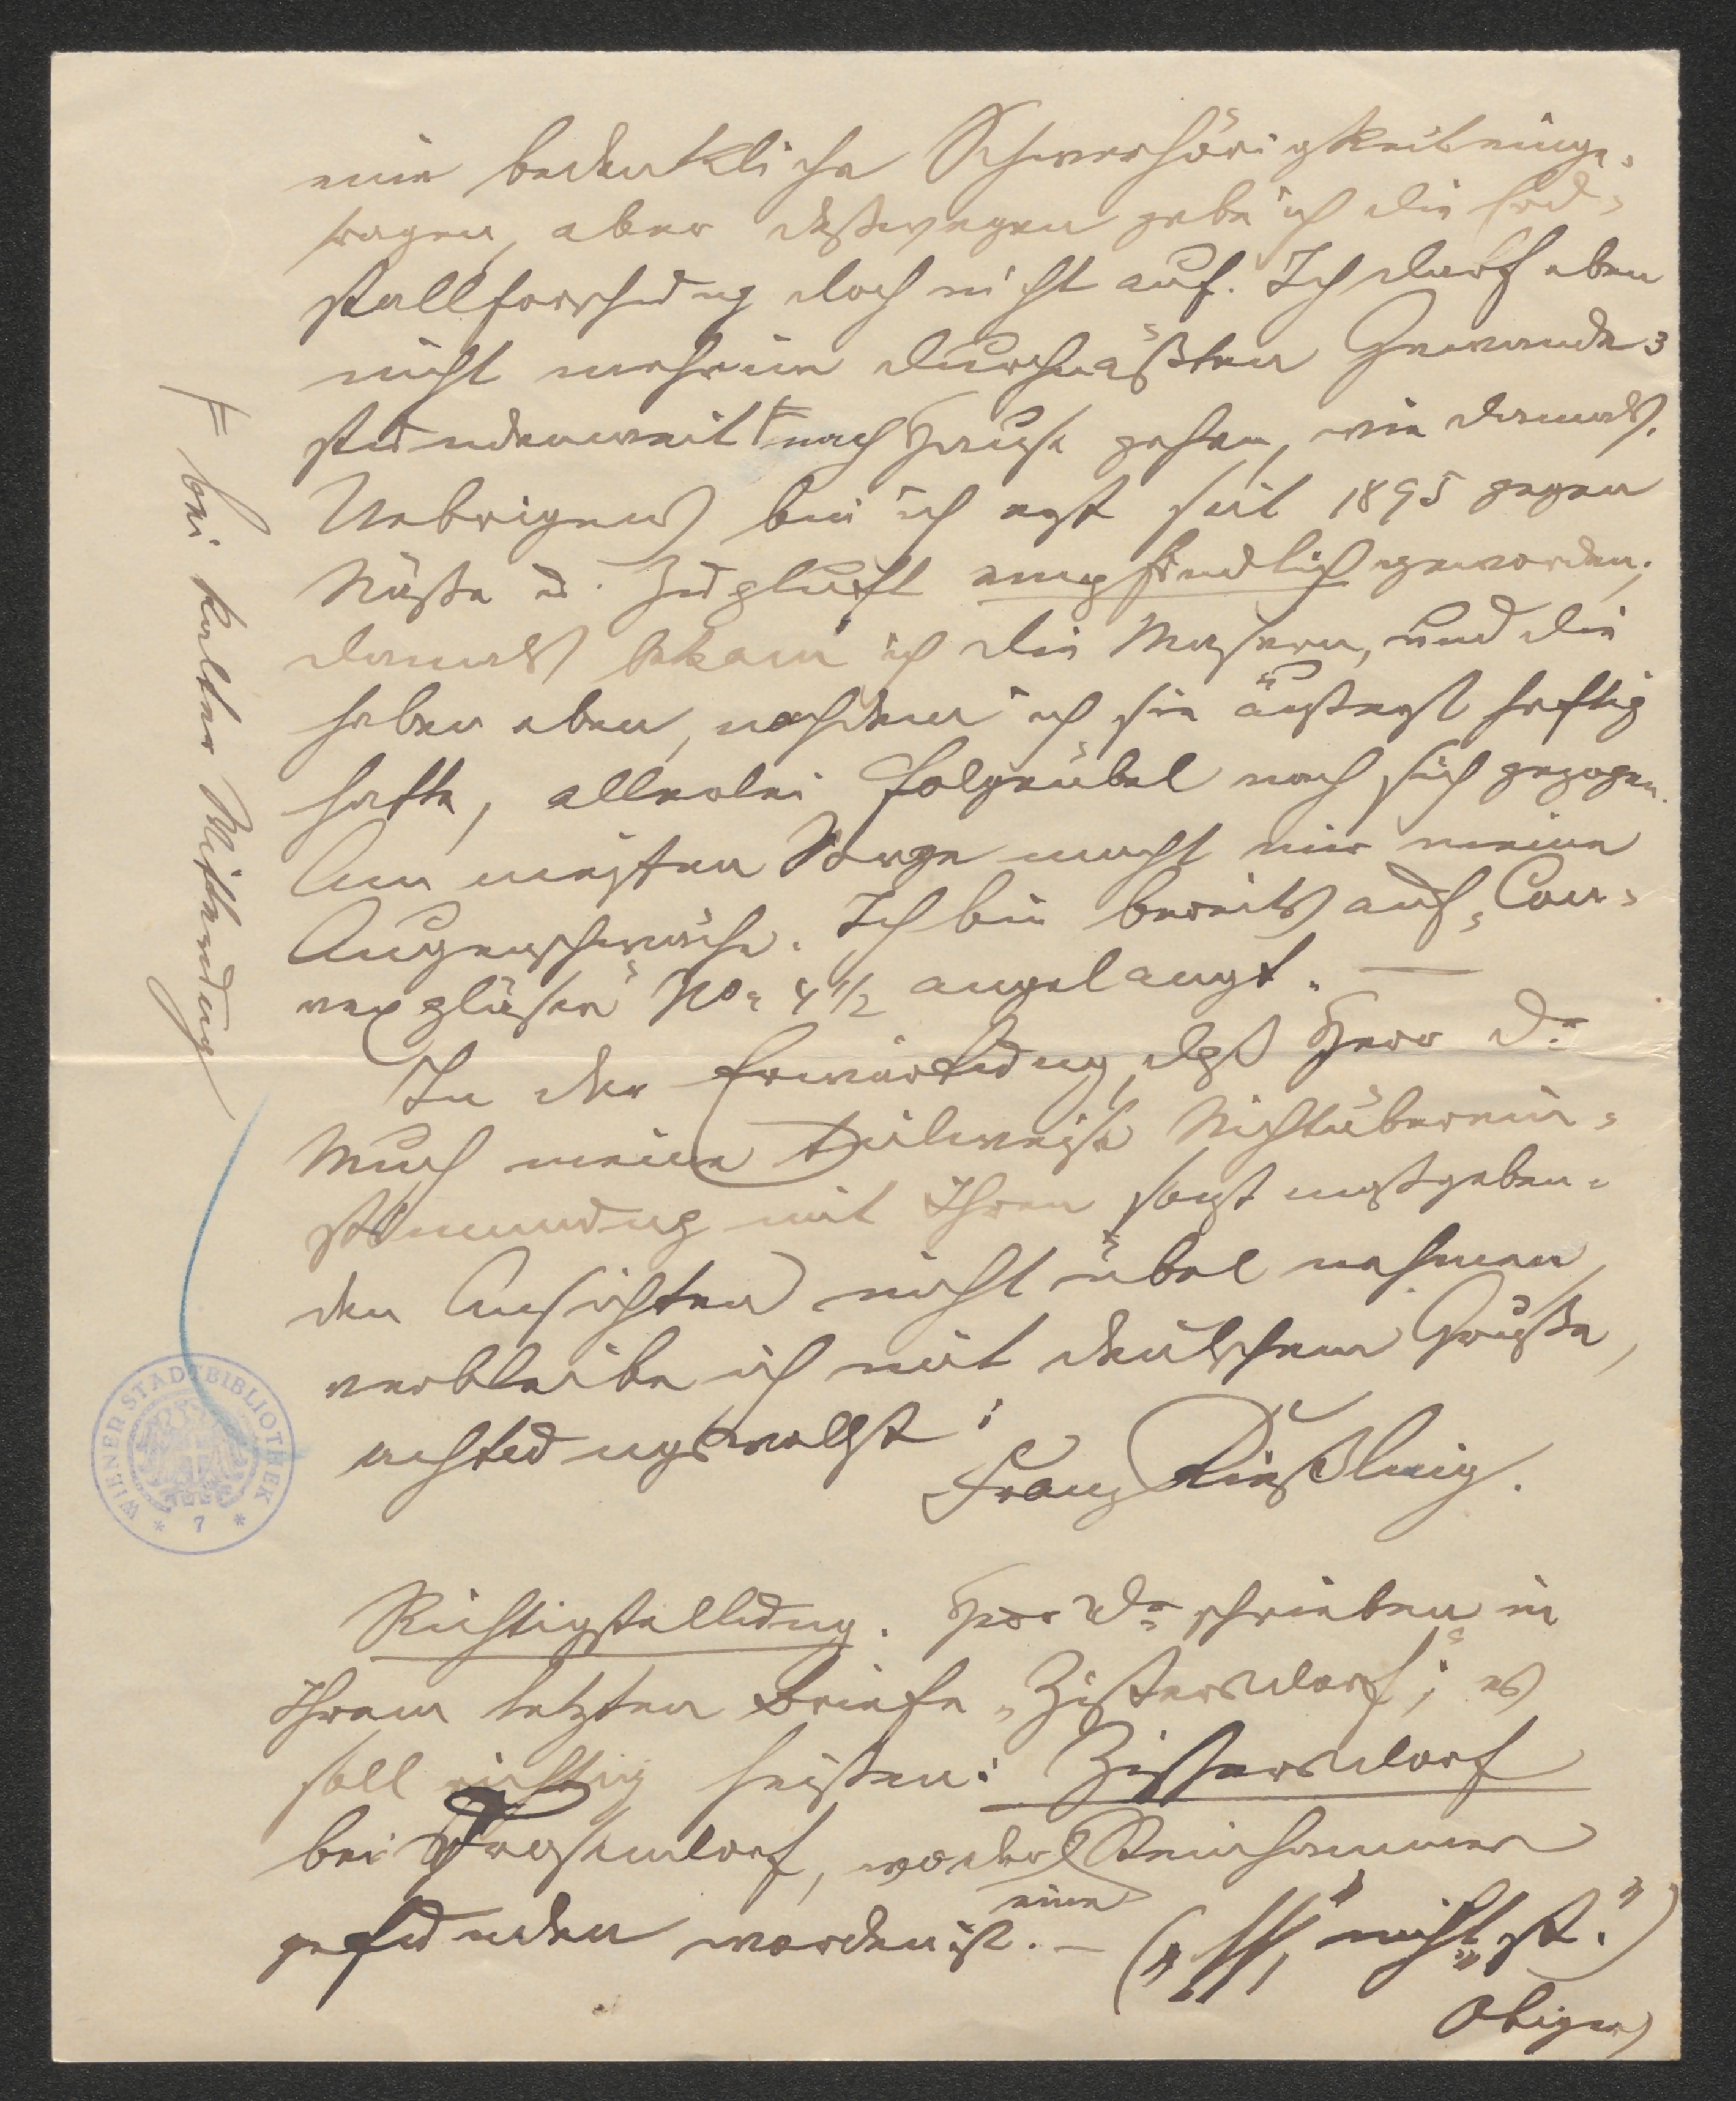 eine bedenkliche Schwerhörigkeit einge-
tragen, aber deßwegen gebe ich die Erd-
stallforschung doch nicht auf. Ich darf eben
nicht mehr im durchnäßten Gewande 3
stundenweit nach Hause gehen, wie damals.
Uebrigens bin ich erst seit 1895 gegen
Näße u. Zugluft empfindlich geworden;
damals bekam ich die Masern, und die
haben eben, nachdem ich sie äußerst heftig
hatte, allerlei Folgeübel nach sich gezogen.
Am meisten Sorge macht mir meine
Augenschwäche. Ich bin bereits auf „Con-
vexgläser“ No. 4 1/2 angelangt. —
In der Erwartung, daß Herr Dr.
Much meine theilweise Nichtüberein-
stimmung mit Ihren sonst maßgeben-
den Ansichten nicht übel nehmen,
verbleibe ich mit deutschem Gruße,
achtungsvollst:
Franz Kießling.
Richtigstellung. Herr Dr. schrieben in
Ihrem letzten Briefe „Zistersdorf“; es
soll richtig heißen: Zissersdorf
bei Drosendorf, wo der eine Steinhammer
gefunden worden ist. — („ss“, nicht „st“.)
Obiger
bei kalter Witterung
WIENER STADTBIBLIOTHEK
* 7 *